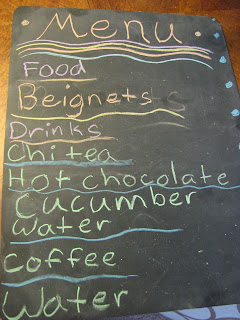 Menu
Food
Beignets
Drinks
Chi tea
Hot chocolate
Cucumber
water
coffee
Water